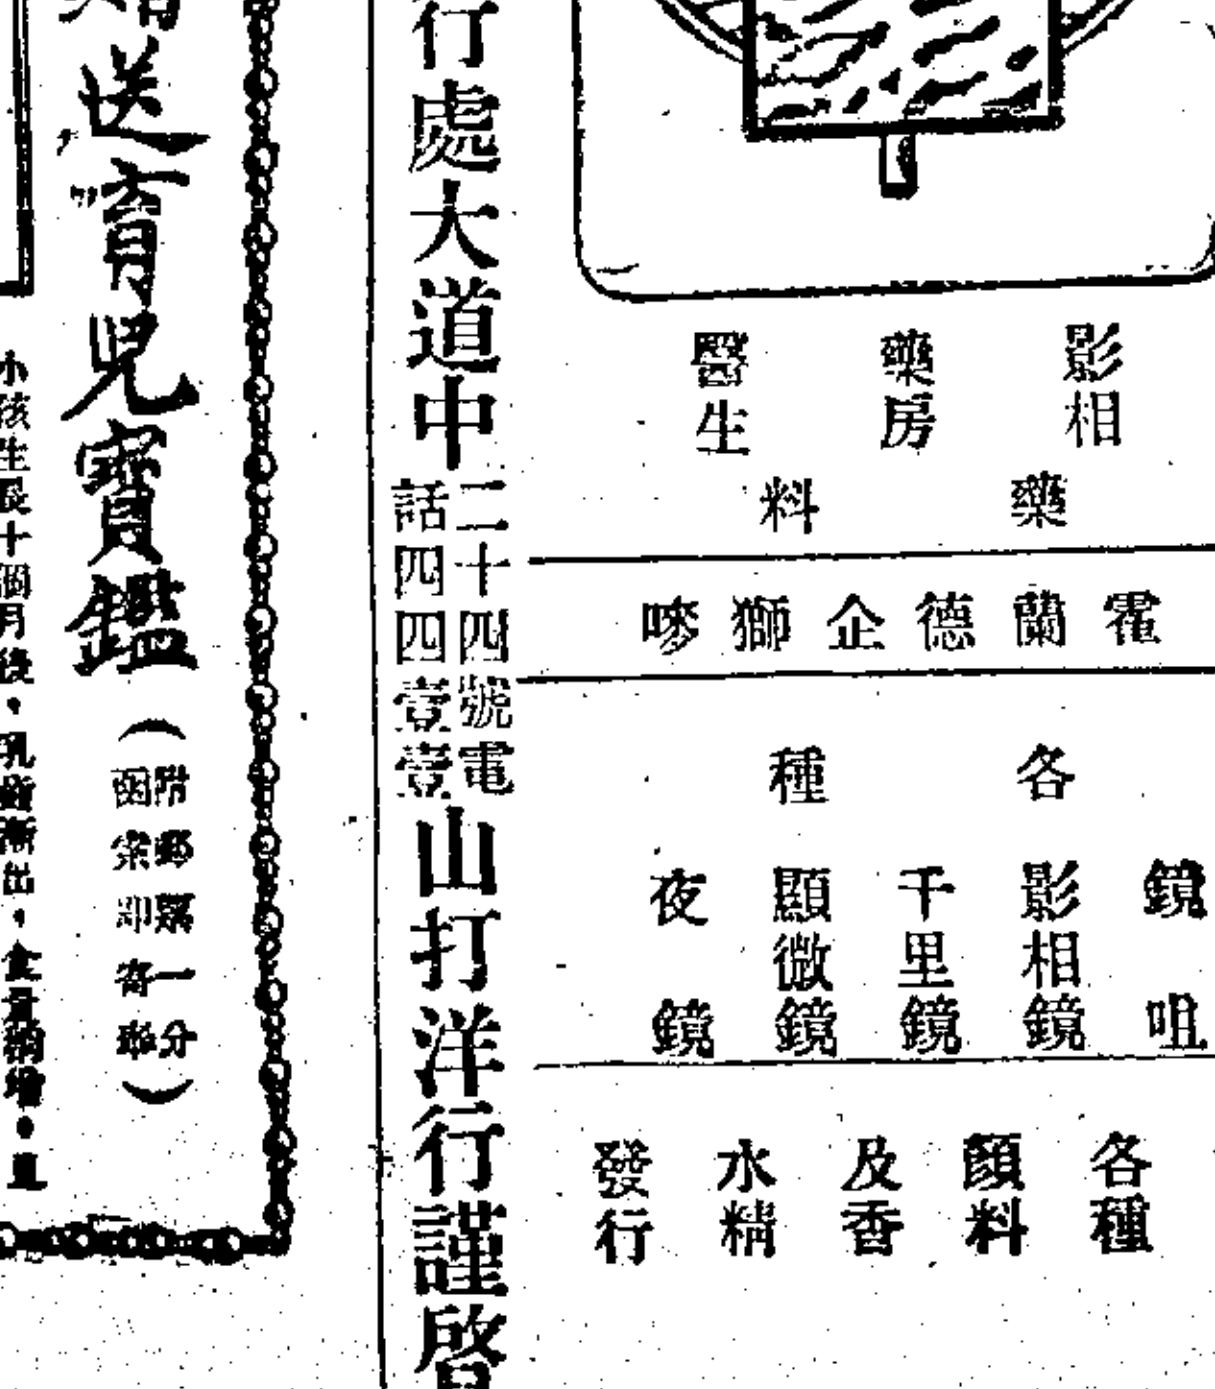 影相 藥房 醫生
藥料
霍蘭德企獅嘜
各種
鏡咀 影相鏡 千里鏡 顯微鏡 夜鏡
各種顏料及香水精發行
行處大道中二十四號電話四四壹壹山打洋行謹啓
送育兒寶鑑（附郵票一分函索即寄）
小孩生長十個月後。乳齒漸出，食量